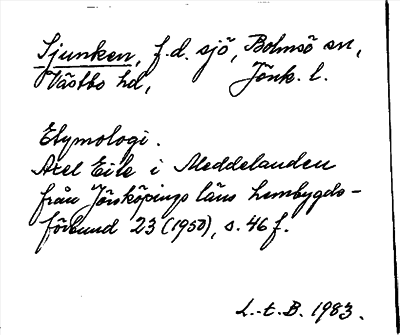 Sjunken, f.d. sjö, Bolmsö sn,
Västbo hd, Jönk. l.
Etymologi.
Axel Eile i Meddelanden
från Jönköpings läns hembygds-
förbund 23 (1950), s. 46 f.
L.-t. B. 1983.